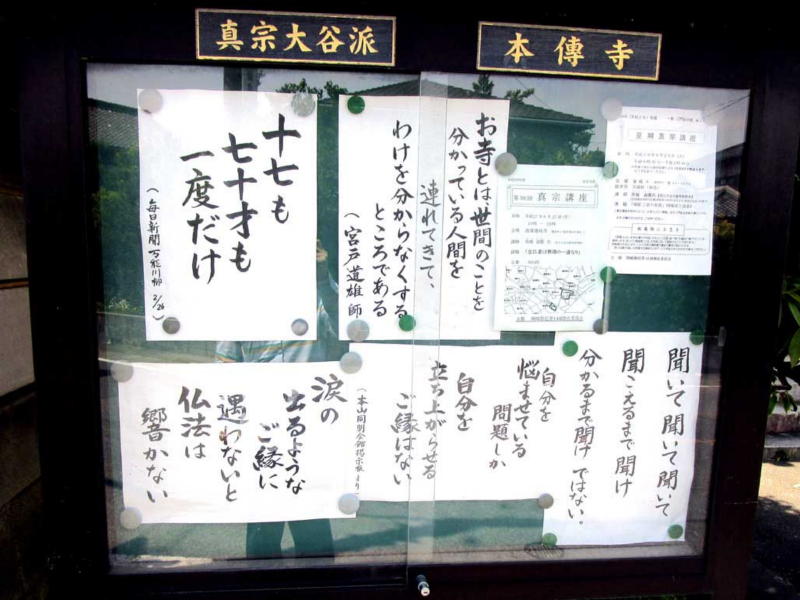 真宗大谷派
本傳寺
十七も
七十才も
一度だけ
(毎日新聞 万能川柳 2/26)
お寺とは、世間のことを
分かっている人間を
連れてきて、
わけを分からなくする
ところである
(宮戸道雄 師)
真宗講座
真宗講座
聞いて聞いて聞いて
聞こえるまで聞け
分かるまで聞け ではない。
自分を
悩ませている
問題しか
自分を
立ち上がらせる
ご縁はない
(本山同朋会館掲示板より)
涙の
出るような
ご縁に
遇わないと
仏法は
響かない